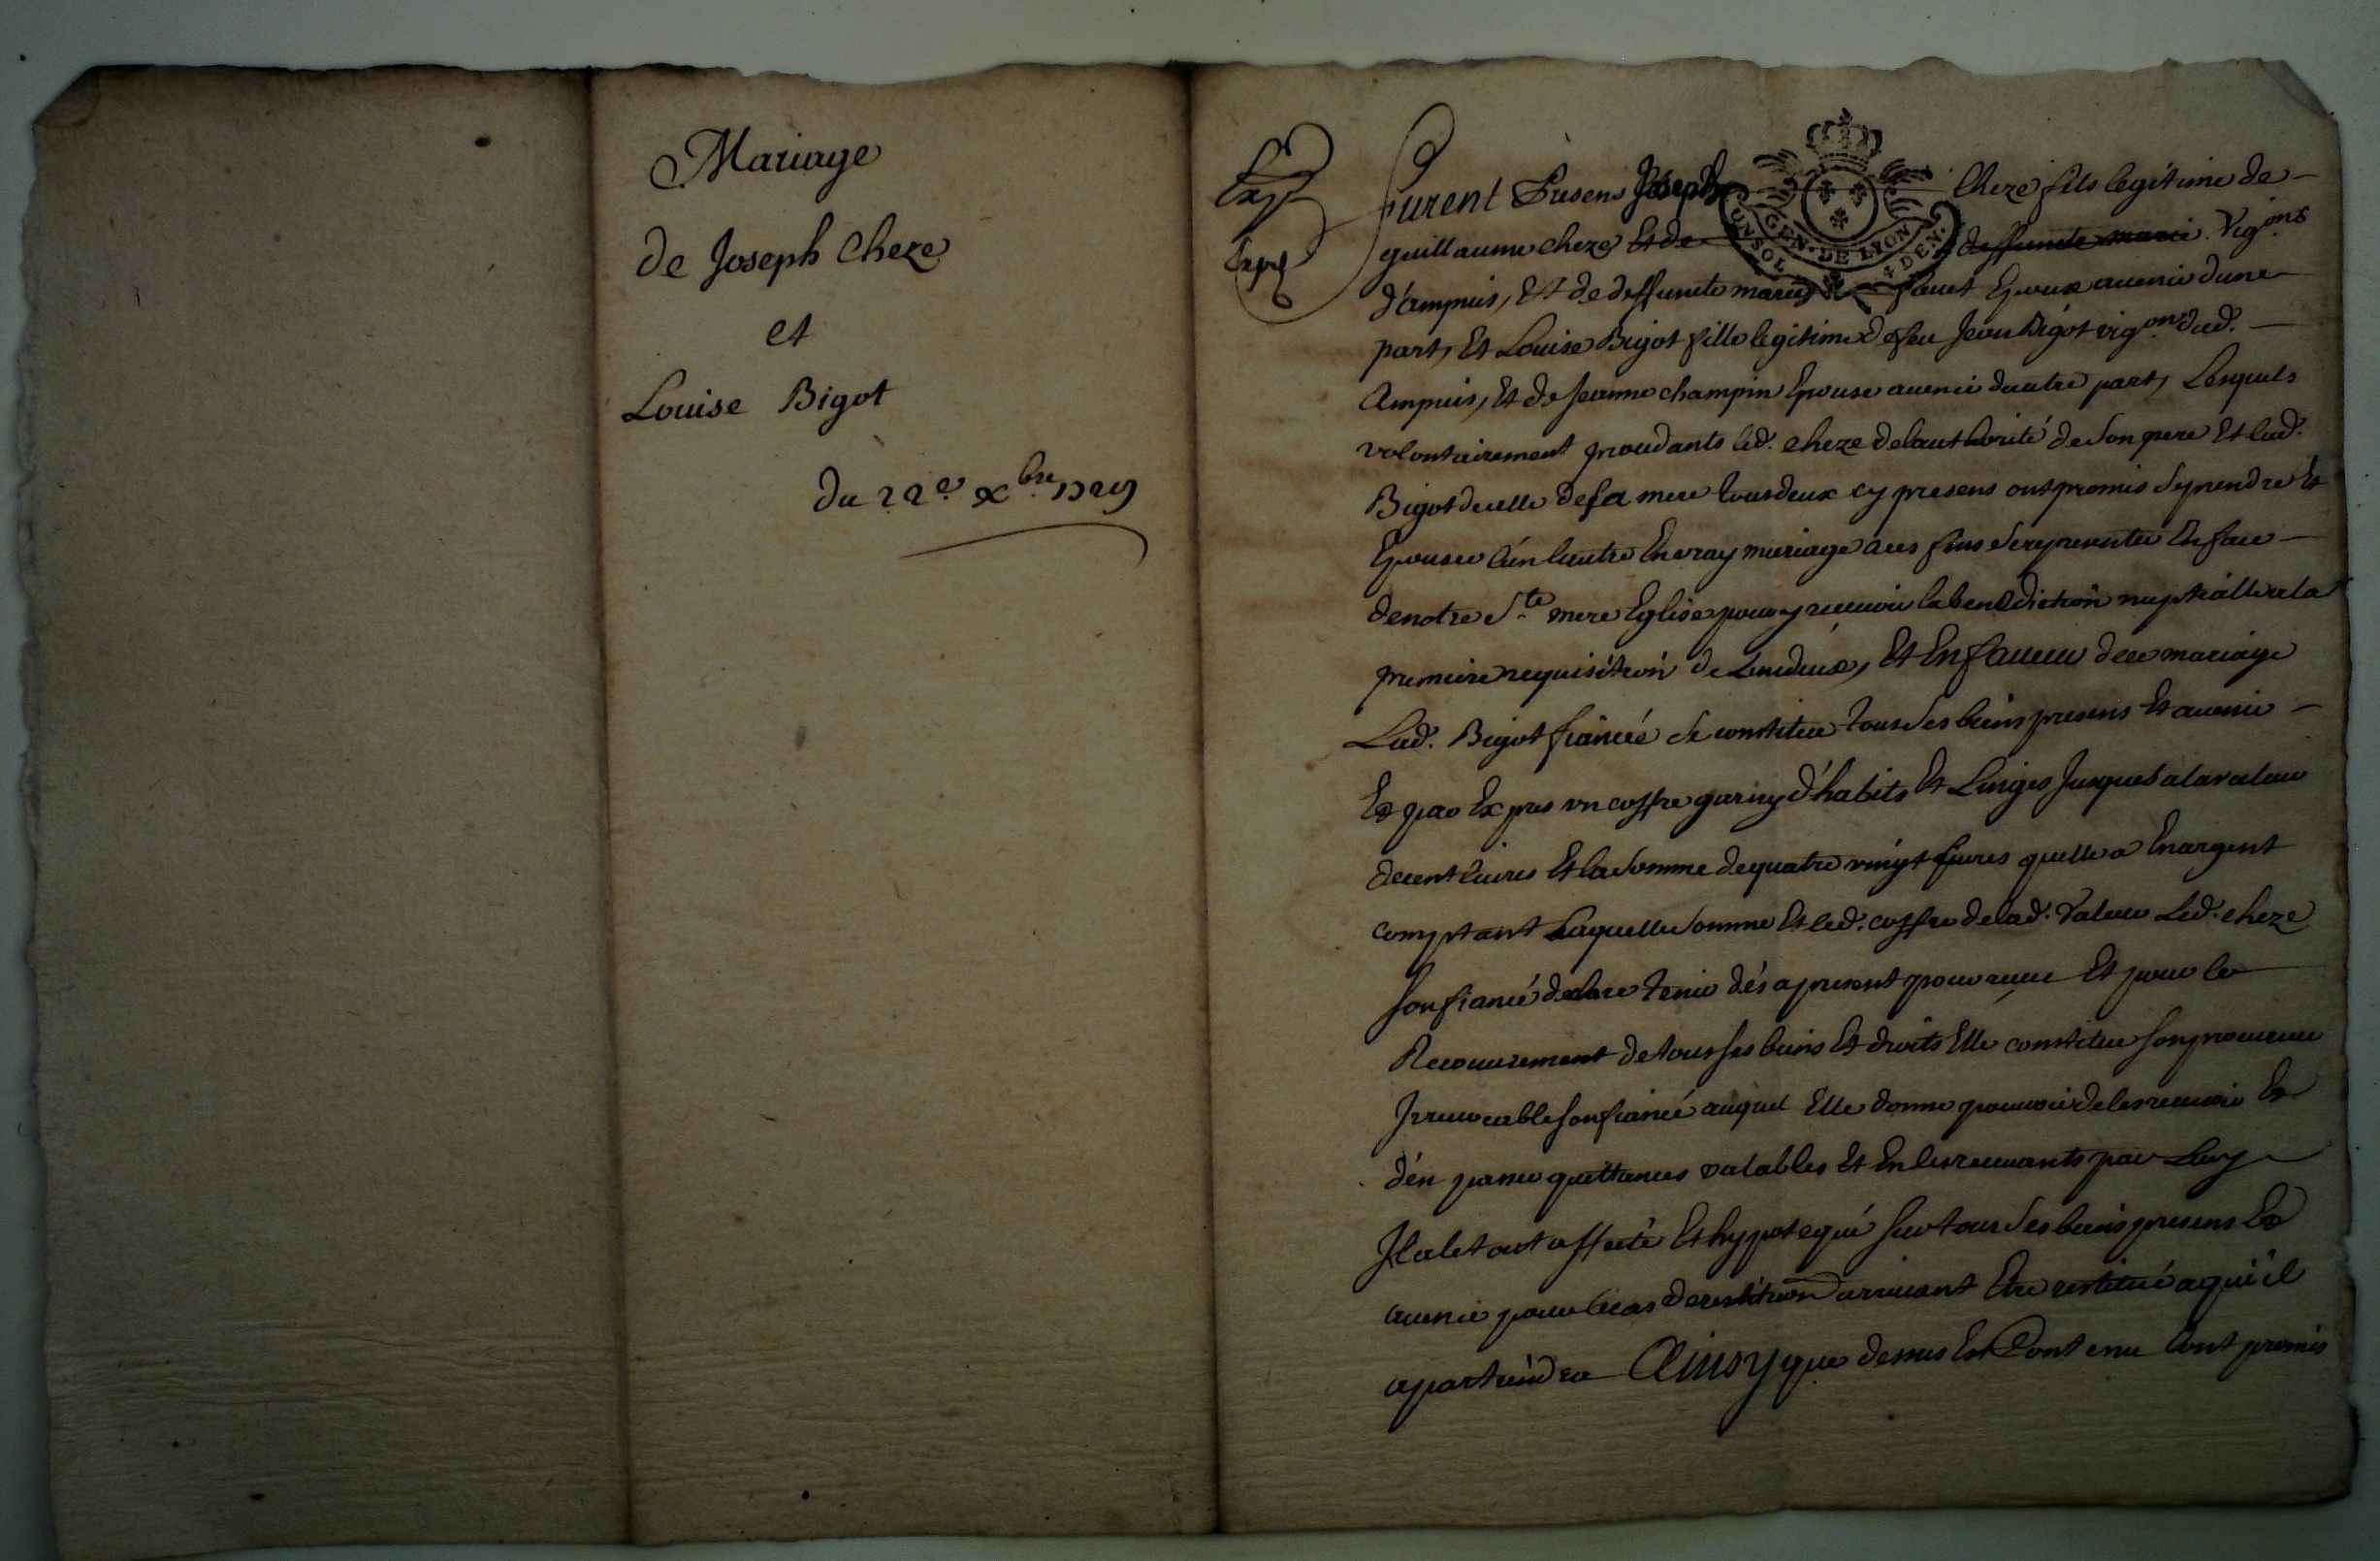 Mariage
de Joseph Cheze
et
Louise Bigot
du 22e. Xbre 1729
GEN. DE LYON
UN SOL
4 DEN.
furent Presens Joseph Cheze fils legitime de
guillaume cheze Et de deffunte marie Vigons
d'ampuis, Et de deffunte marie fauet Epoux avenir dune
part, Et Louise Bigot fille legitime de feu Jean Bigot vigon dud.
Ampuis, Et de Jeanne champin Epouse avenir dautre part, Lesquels
volontairement procedants led. cheze delauthorité de son pere Et lad.
Bigot decelle de sa mere tous deux cy presens ont promis se prendre Et
Epouser l'un lautre En vray mariage a ces fins se representer En face
de notre Ste mere Eglise pour y recevoir la benediction nuptialle a la
premiere requisition de Lun deux, Et En faueur de ce mariage
Lad. Bigot fiancée se constitue tous ses biens presens Et avenir
Et par Expres vn coffre garny d'habits Et Linges Jusques a la valeur
de cent liures Et la somme de quatre vingt liures quelle a En argent
comptant Laquelle somme Et led. coffre de lad. valeur Led. cheze
son fiancé declare tenir dés a present pour receu Et pour le
Recouurement de tous ses biens Et droits Elle constitue son procureur
Jrreuocable son fiancé auquel Elle donne pouuoir de les receuoir Et
d'en passer quittances valables Et En les receuants par Luy
Jl a le tout affecté Et hypotequé sur tous ses biens presens Et
avenir pour le cas de restitution arriuant Etre restitué a qui il
apartiendra Ainsy que dessus Est Contenu Lont promis